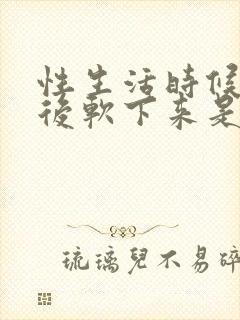 性生活時候
後軟下来是
琉璃兒不易碎